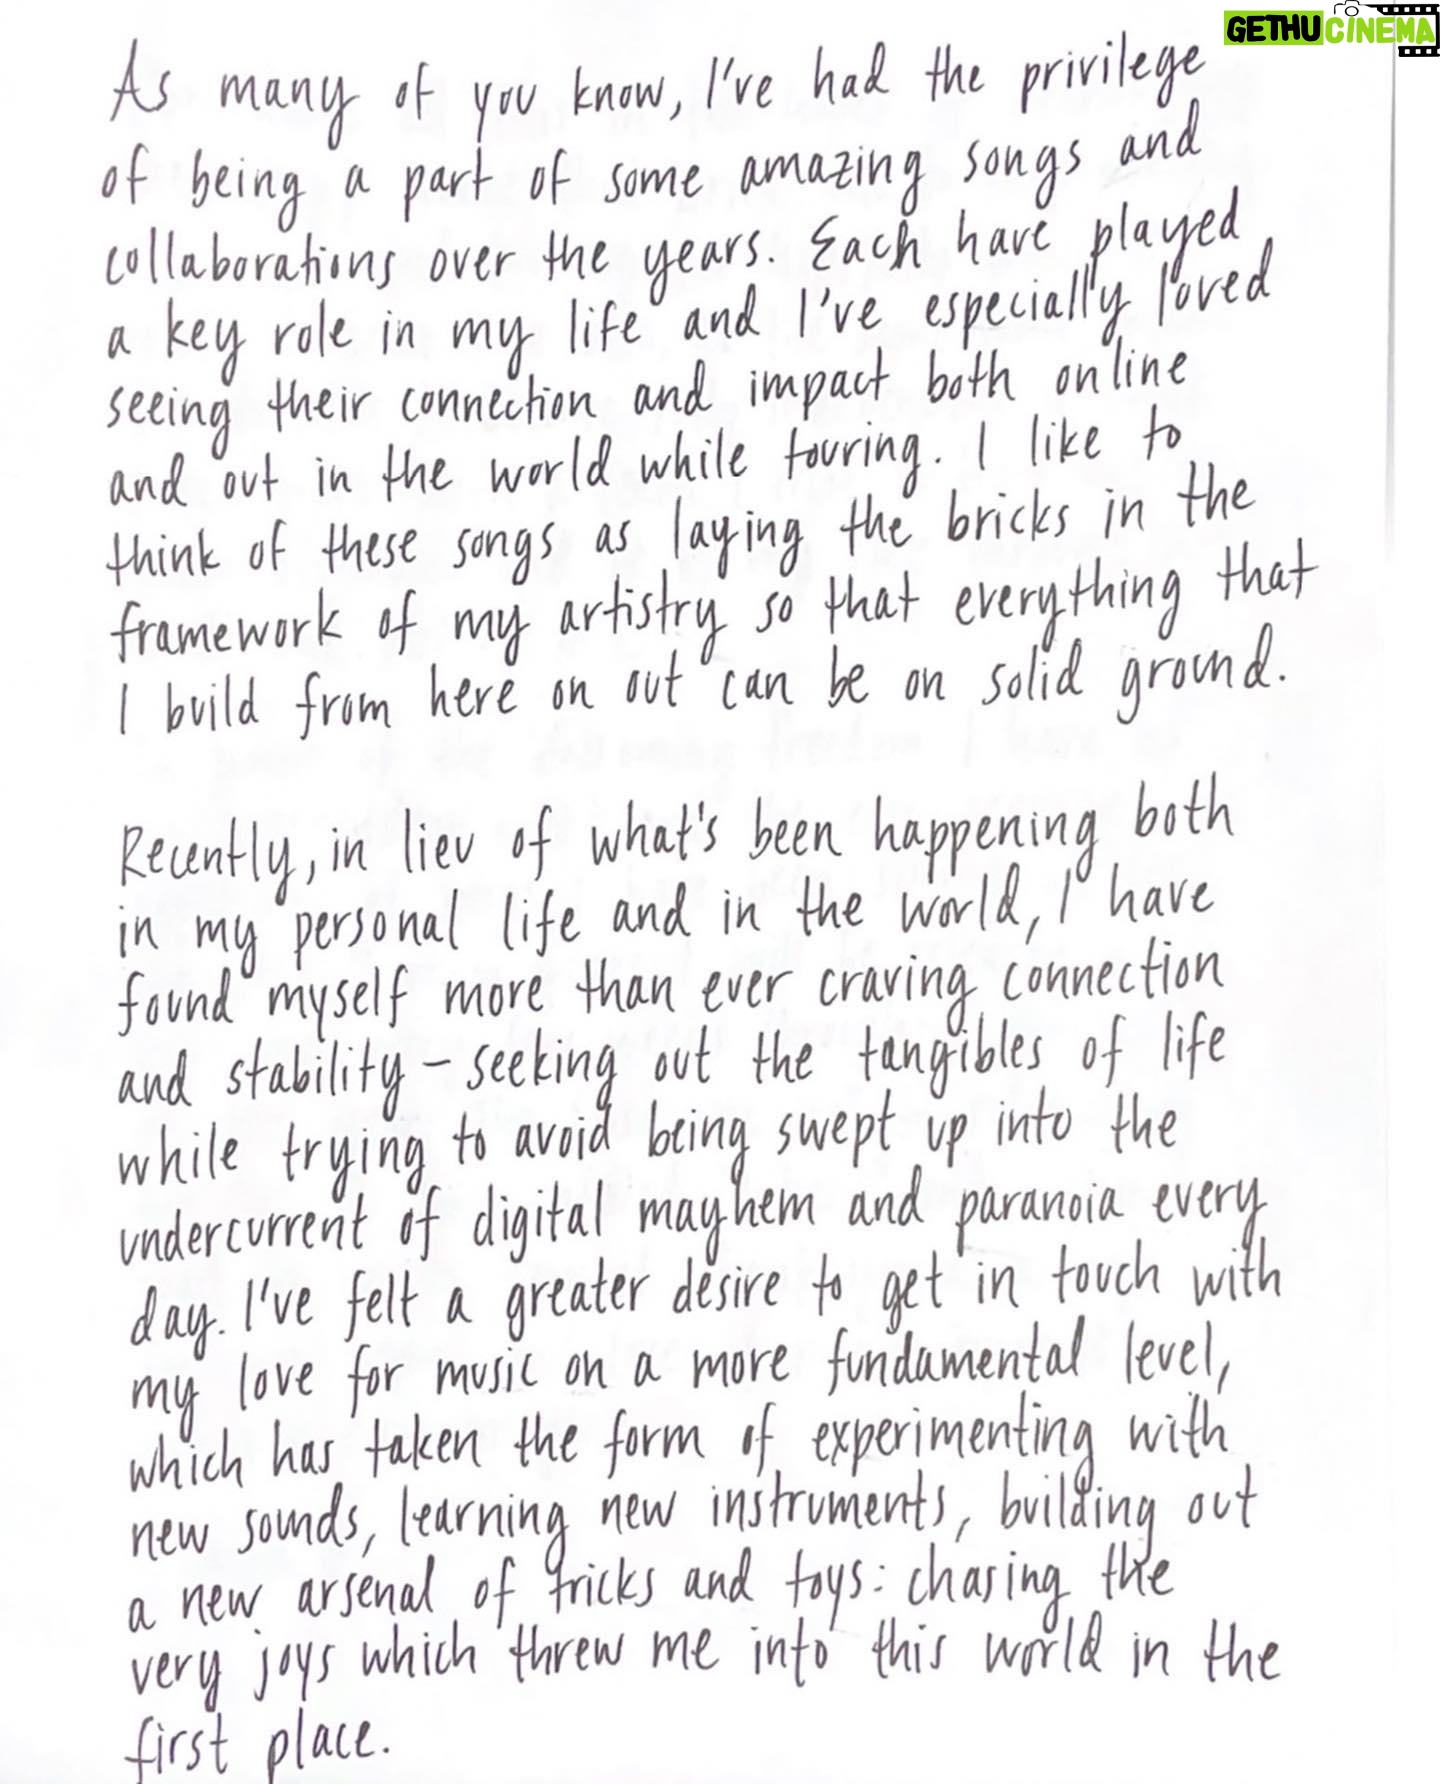 GETHUCINEMA
As many of you know, I've had the privilege
of being a part of some amazing songs and
collaborations over the years. Each have played
a key role in my life and I've especially loved
seeing their connection and impact both online
and out in the world while touring. I like to
think of these songs as laying the bricks in the
framework of my artistry so that everything that
I build from here on out can be on solid ground.
Recently, in lieu of what's been happening both
in my personal life and in the world, I have
found myself more than ever craving connection
and stability – seeking out the tangibles of life
while trying to avoid being swept up into the
undercurrent of digital mayhem and paranoia every
day. I've felt a greater desire to get in touch with
my love for music on a more fundamental level,
which has taken the form of experimenting with
new sounds, learning new instruments, building out
a new arsenal of tricks and toys: chasing the
very joys which threw me into this world in the
first place.